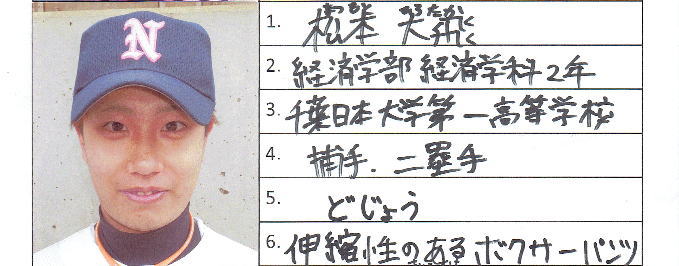 N
1. 松本 大飛
2. 経済学部 経済学科2年
3. 千葉日本大学第一高等学校
4. 捕手. 二塁手
5. どじょう
6. 伸縮性のあるボクサーパンツ